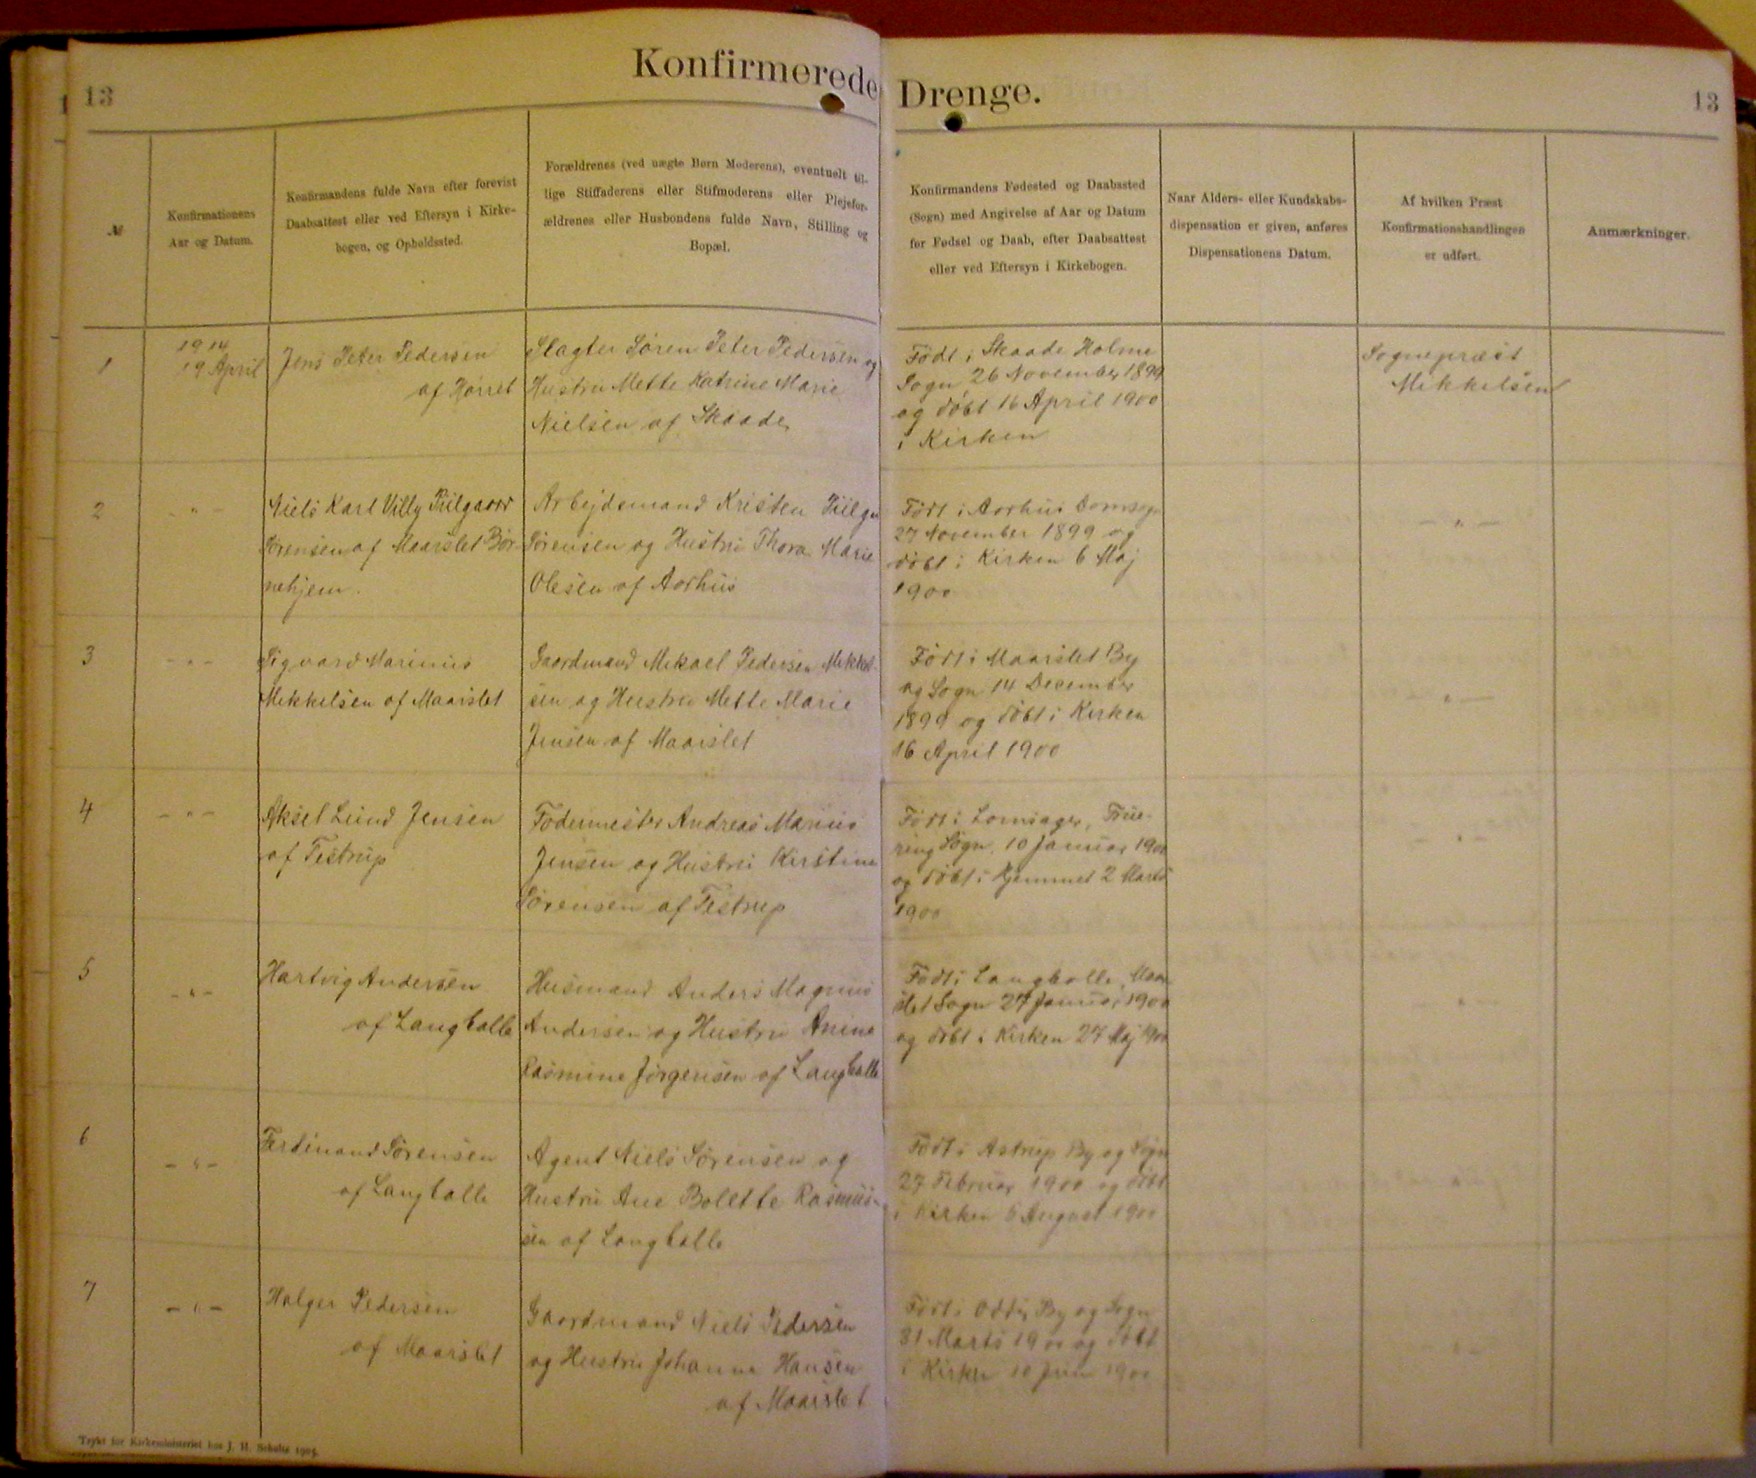 Konfirmerede Drenge.
13
13
№
Konfirmationens
Aar og Datum.
Konfirmandens fulde Navn efter forevist
Daabsattest eller ved Eftersyn i Kirke-
bogen, og Opholdssted.
Forældrenes (ved uægte Børn Moderens), eventuelt til-
lige Stiffaderens eller Stifmoderens eller Plejefor-
ældrenes eller Husbondens fulde Navn, Stilling og
Bopæl.
Konfirmandens Fødested og Daabssted
(Sogn) med Angivelse af Aar og Datum
for Fødsel og Daab, efter Daabsattest
eller ved Eftersyn i Kirkebogen.
Naar Alders- eller Kundskabs-
dispensation er given, anføres
Dispensationens Datum.
Af hvilken Præst
Konfirmationshandlingen
er udført.
Anmærkninger.
1
1914
19 April
Jens Peter Pedersen
af Hørret
Slagter Søren Peter Pedersen og
Hustru Mette Katrine Marie
Nielsen af Skaade
Født i Skaade Holme
Sogn 26 November 1899
og døbt 16 April 1900
i Kirken
Sognepræst
Mikkelsen
2
- " -
Niels Karl Villy Piilgaard
Sørensen af Maarslet Bør-
nehjem.
Arbejdsmand Kristen Piilg
Sørensen og Hustru Thora Marie
Olesen af Aarhus
Født i Aarhus Domsogn
27 November 1899 og
døbt i Kirken 6 Maj
1900
- " -
3
- " -
Sigvard Marinus
Mikkelsen af Maarslet
Gaardmand Mikael Pedersen Mikkel-
sen og Hustru Mette Marie
Jensen af Maarslet
Født i Maarslet By
og Sogn 14 December
1899 og døbt i Kirken
16 April 1900
- " -
4
- " -
Aksel Lund Jensen
af Testrup
Fodermester Andreas Marius
Jensen og Hustru Kirstine
Sørensen af Testrup
Født i
ring Sogn. 10 Januar 1900
og døbt i Hjemmet 2 Marts
1900
- " -
5
- " -
Hartvig Andersen
af Langballe
Husmand Anders Magnus
Andersen og Hustru Anine
Rasmine Jørgensen af Langballe
Født i Langballe, Maar
slet Sogn 27 Januar 1900
og døbt i Kirken 27 Maj 1900
- " -
6
- " -
Ferdinand Sørensen
af Langballe
Agent Niels Sørensen og
Hustru Ane Bolette Rasmus-
sen af Langballe
Født i Astrup By og Sogn
27 Februar 1900 og døbt
i Kirken 6 August 1900
7
- " -
Holger Pedersen
af Maarslet
Gaardmand Niels Pedersen
og Hustru Johanne Hansen
af Maarslet
Født i Odder By og Sogn
31 Marts 1900 og døbt
i Kirken 10 Juni 1900
- " -
Trykt for Kirkeministeriet hos J. H. Schultz 1905.